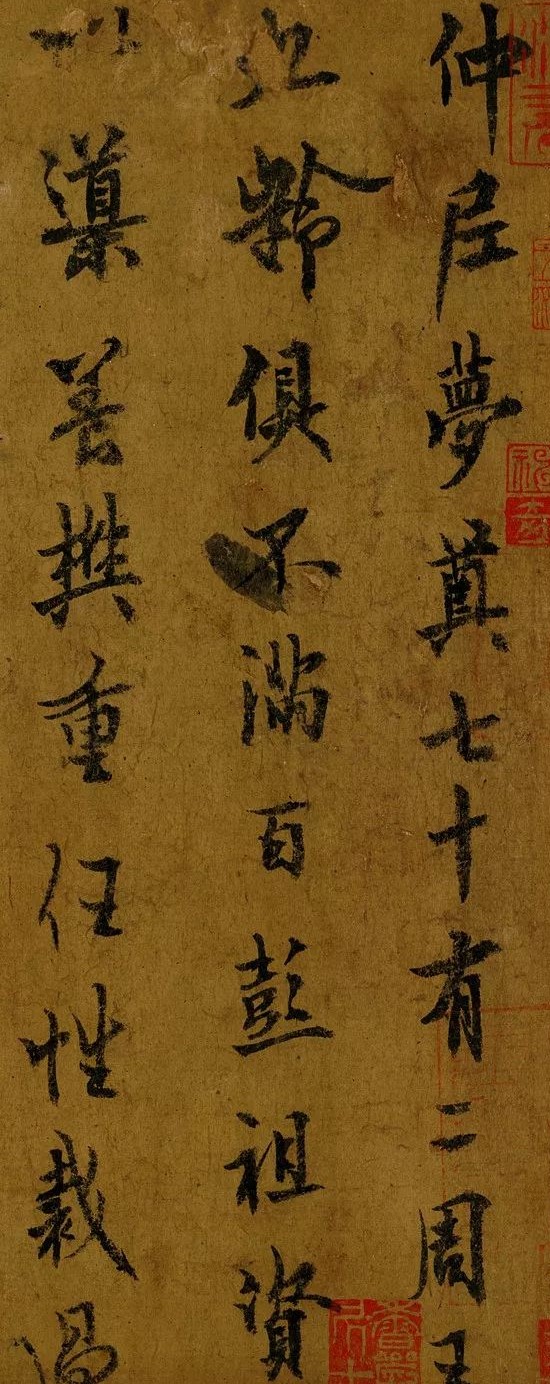 仲尼夢奠七十有二周王
九齡俱不滿百彭祖資
以導養樊重任性裁過